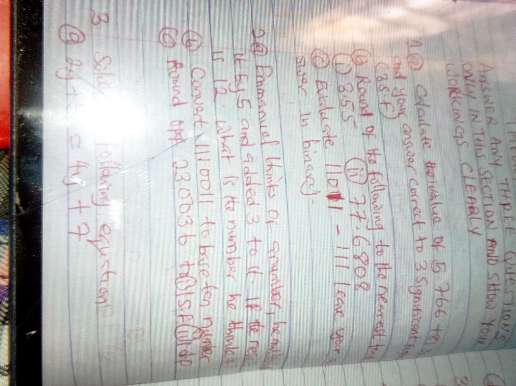 ANSWER ANY THREE QUESTIONS
ONLY IN THIS SECTION AND SHOW YOUR
WORKINGS CLEARLY
1 (a) Calculate the value of 5.766
and your answer correct to 3 significant
(3 S.F)
(b) Round of the following to the nearest
(i) 355 (ii) 77.6808
(c) Evaluate 11011 - 111 leave your
answer in binary.
2(a) Emmanuel thinks of a number, he
it by 5 and added 3 to it. If the
is 12 what is the number he
(b) Convert 1110011 to base ten number
(c) Round off 230036 to (i) 1 S.F (ii)
3 Solve following equation
(a) 2y = 4y + 7